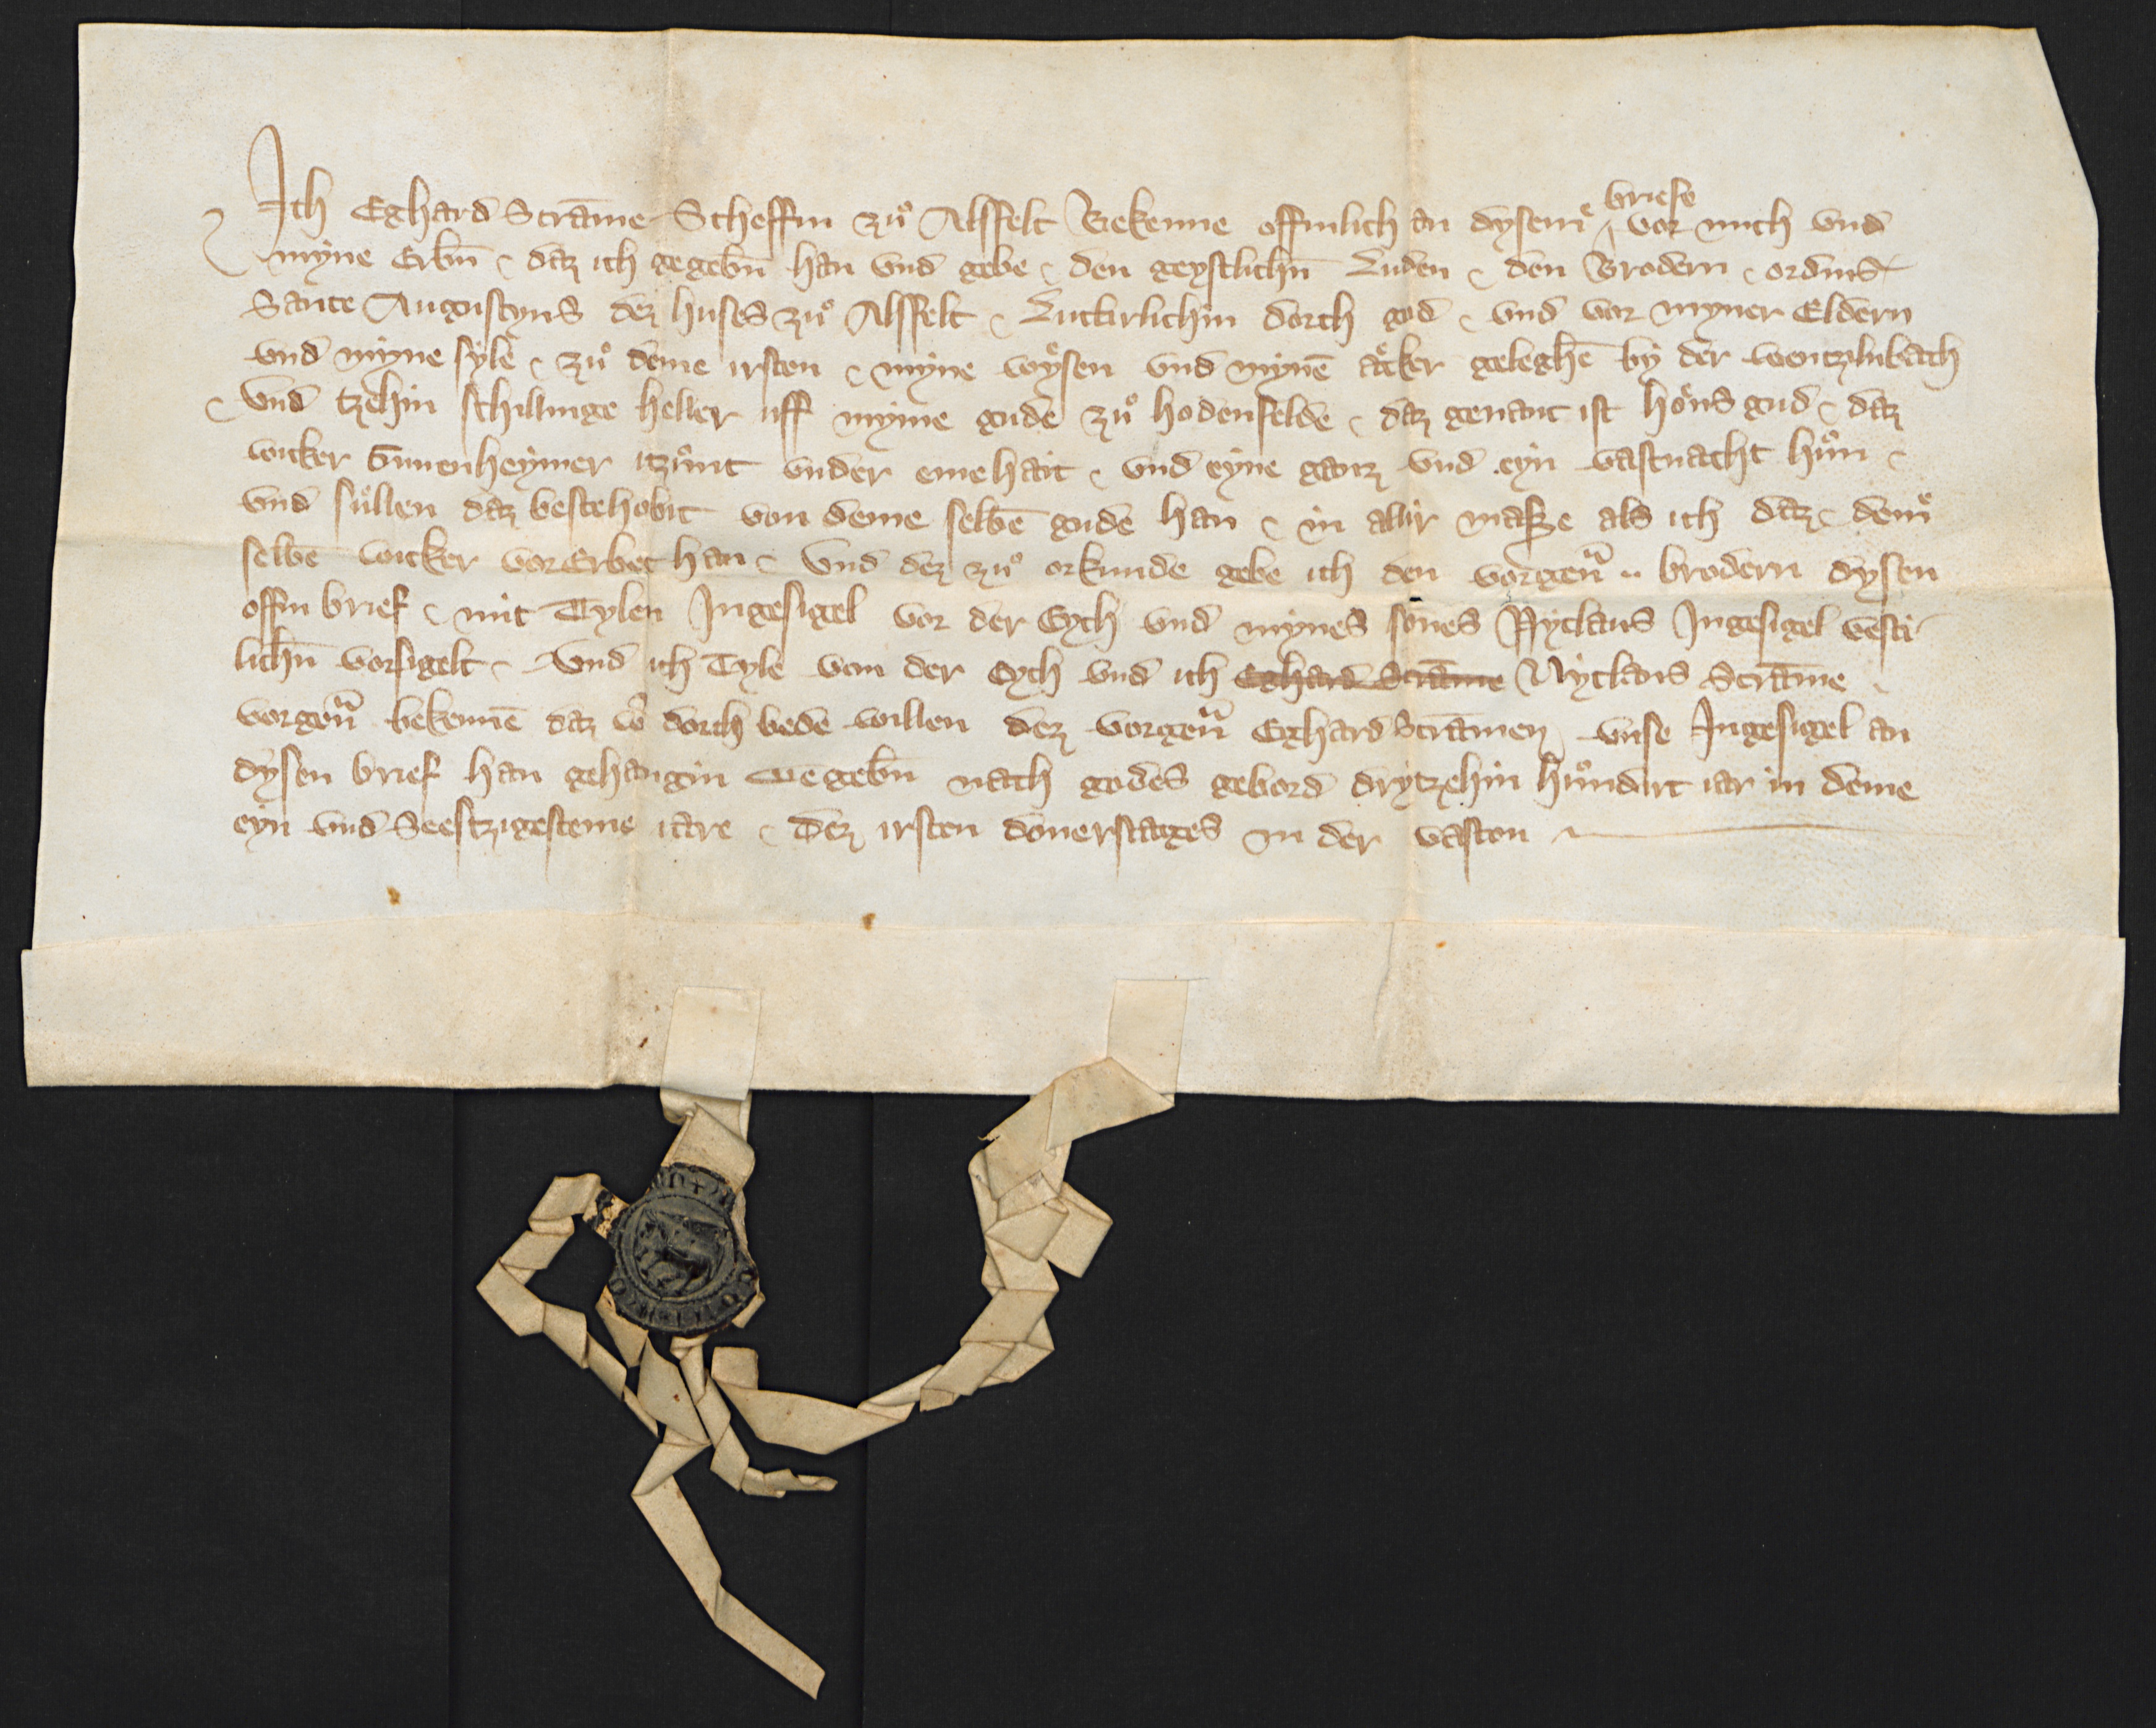 Ich Eghard Scrām̄e Scheffin zuͦ Alsffelt Bekenne offinlich an dyseme briefe vor mich vnd
myne Erbin̄ daz ich gegebin̄ han vnd gebe den geystlichn̄ Luden den Brodern ordins
Sante Augustyns dez huses zuͦ Alsffelt Luttirlichin dorch god vnd vor myner Eldern
vnd myne syle zuͦ deme irsten myne wysen vnd mynē acker geleghē by der wentzlnbach
vnd tzehin schillinge heller uff myme gude zuͦ hodenfelde daz genant ist hoͤns gud daz
wicker Gunenheymer itzuͦnt vnder eme hait vnd eyne ganz vnd eyn vastnacht huͦn
vnd sullen daz bestehobit von deme selbē gude han in allir masze als ich daz deme
selbē wicker vorErbet han Vnd dez zuͦ orkunde gebe ich den vorgen̄ brodern dysen
offin brief mit Tylen Ingesigel vor der Eych vnd mynes sones Nyclaus Ingesigel vesti
lichn̄ vorsigelt Vnd ich Tyle von der Eych vnd ich Eghard Scrāme Nyclaus Scrāme
vorgen̄ bekennē daz wͦ dorch bede willen dez vorgen̄ Eghard Scrāmen vnse Ingesigel an
dysen brief han gehangin Gegebin̄ nach godes gebord drytzehin huͦndirt iar in deme
eyn vnd Seestzigesteme iare dez irsten donerstages in der vasten